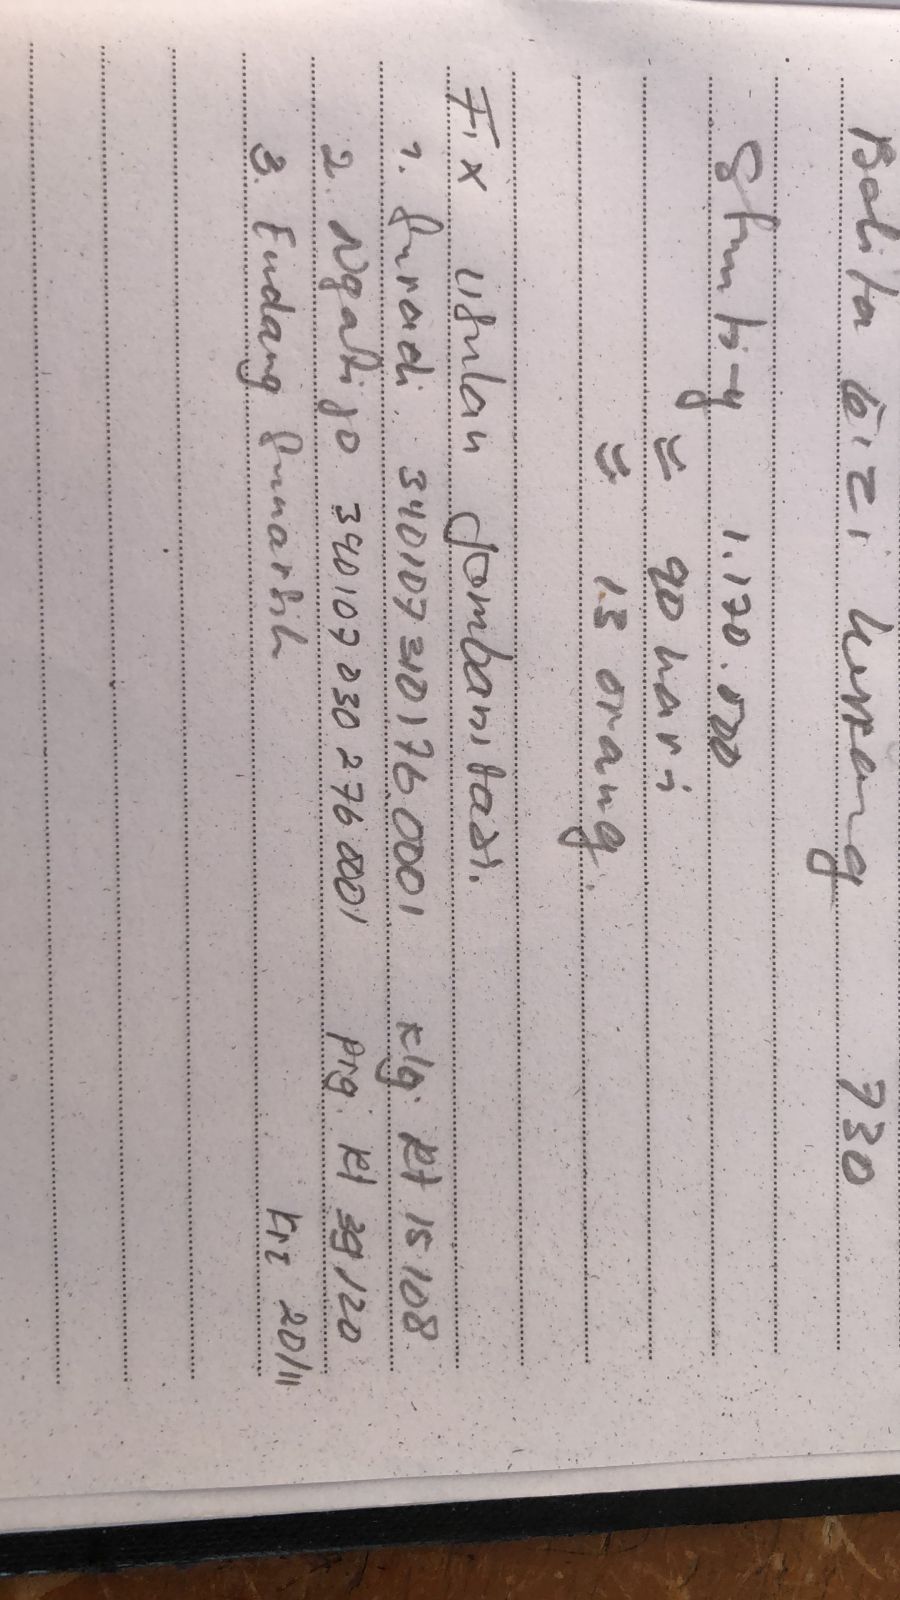 Balita Gizi kurang 730
Stunting 1.170.000
= 90 hari
= 13 orang.
Fix usulan jombanisasi.
1. Suradi. 3401073101760001 Klg. Rt 15.108
2. Ngatijo 3401070302760001 Prg. Rt 39/20
3. Endang Sunarsih Krz 20/11